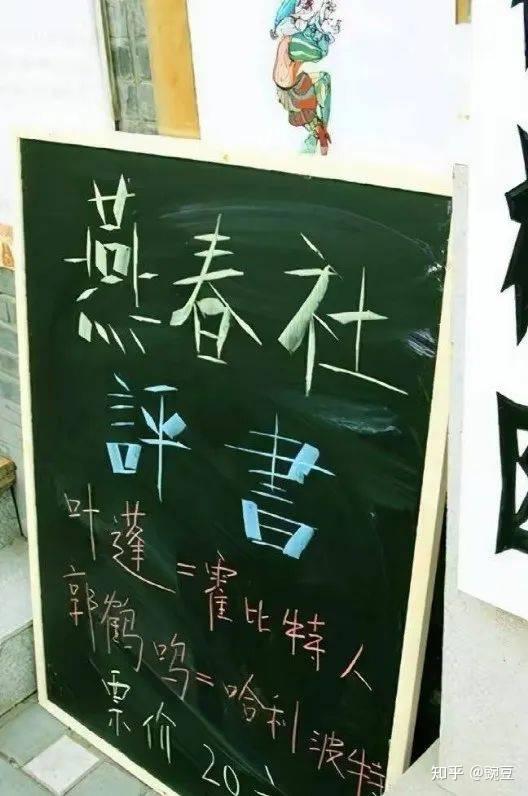 燕春社
評書
叶蓬=霍比特人
郭鹤鸣=哈利波特
票价20
知乎 @豌豆